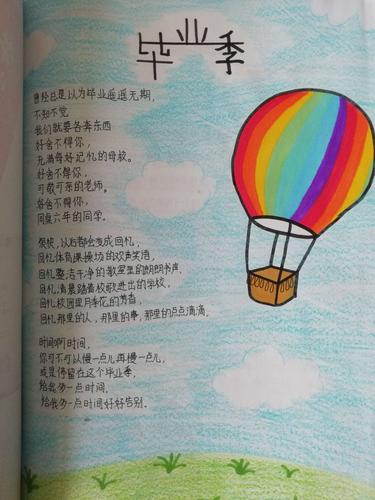 毕业季
曾经总是以为毕业遥遥无期,
不知不觉
我们就要各奔东西
好舍不得你,
充满每好记忆的母校。
好舍不得你,
可敬可亲的老师。
好舍不得你,
同窗六年的同学。
很快,以后都会变成回忆,
回忆体育课操场的欢声笑语,
回忆整洁干净的教室里的朗朗书声,
回忆清晨踏着校歌进出的学校,
回忆校园里月季花的芳香,
回忆那里的人,那里的事,那里的点点滴滴.
时间啊时间,
你可不可以慢一点儿再慢一点儿,
或是停留在这个毕业季,
给我多一点时间,
给我多一点时间好好告别.